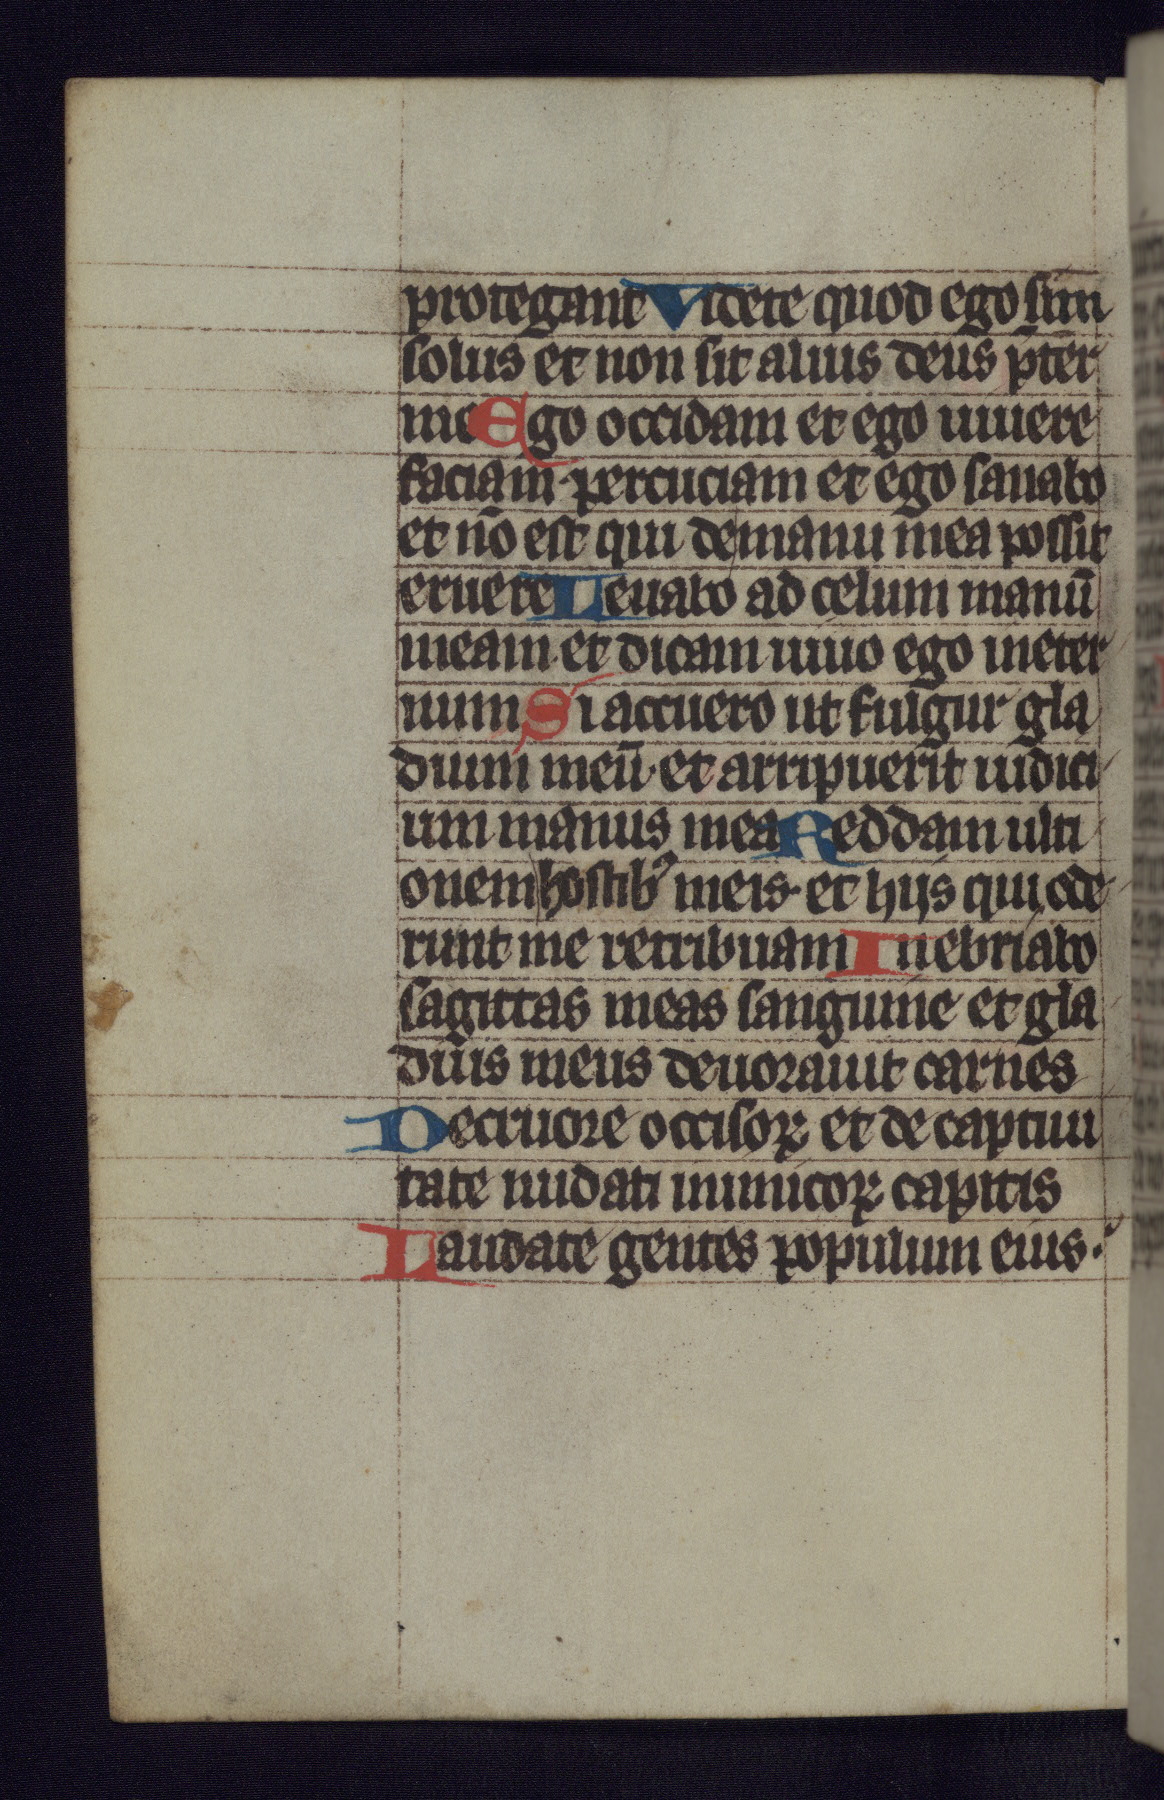 protegant Videte quod ego sim
solus et non sit alius deus p̄ter
me Ego occidam et ego uiuere
faciam percuciam et ego sanabo
et nō est qui de manu mea possit
eruere Leuabo ad celum manū
meam et dicam uiuo ego in eter
num Si accuero ut fulgur gla
dium meū et arripuerit iudici
um manus mea Reddam ulti
onem hostibꝰ meis et hijs qui ode
runt me retribuam Inebriabo
sagittas meas sanguine et gla
dius meus deuorauit carnes
De cruore occisoꝝ et de captiui
tate nudati inimicoꝝ capitis
Laudate gentes populum eius